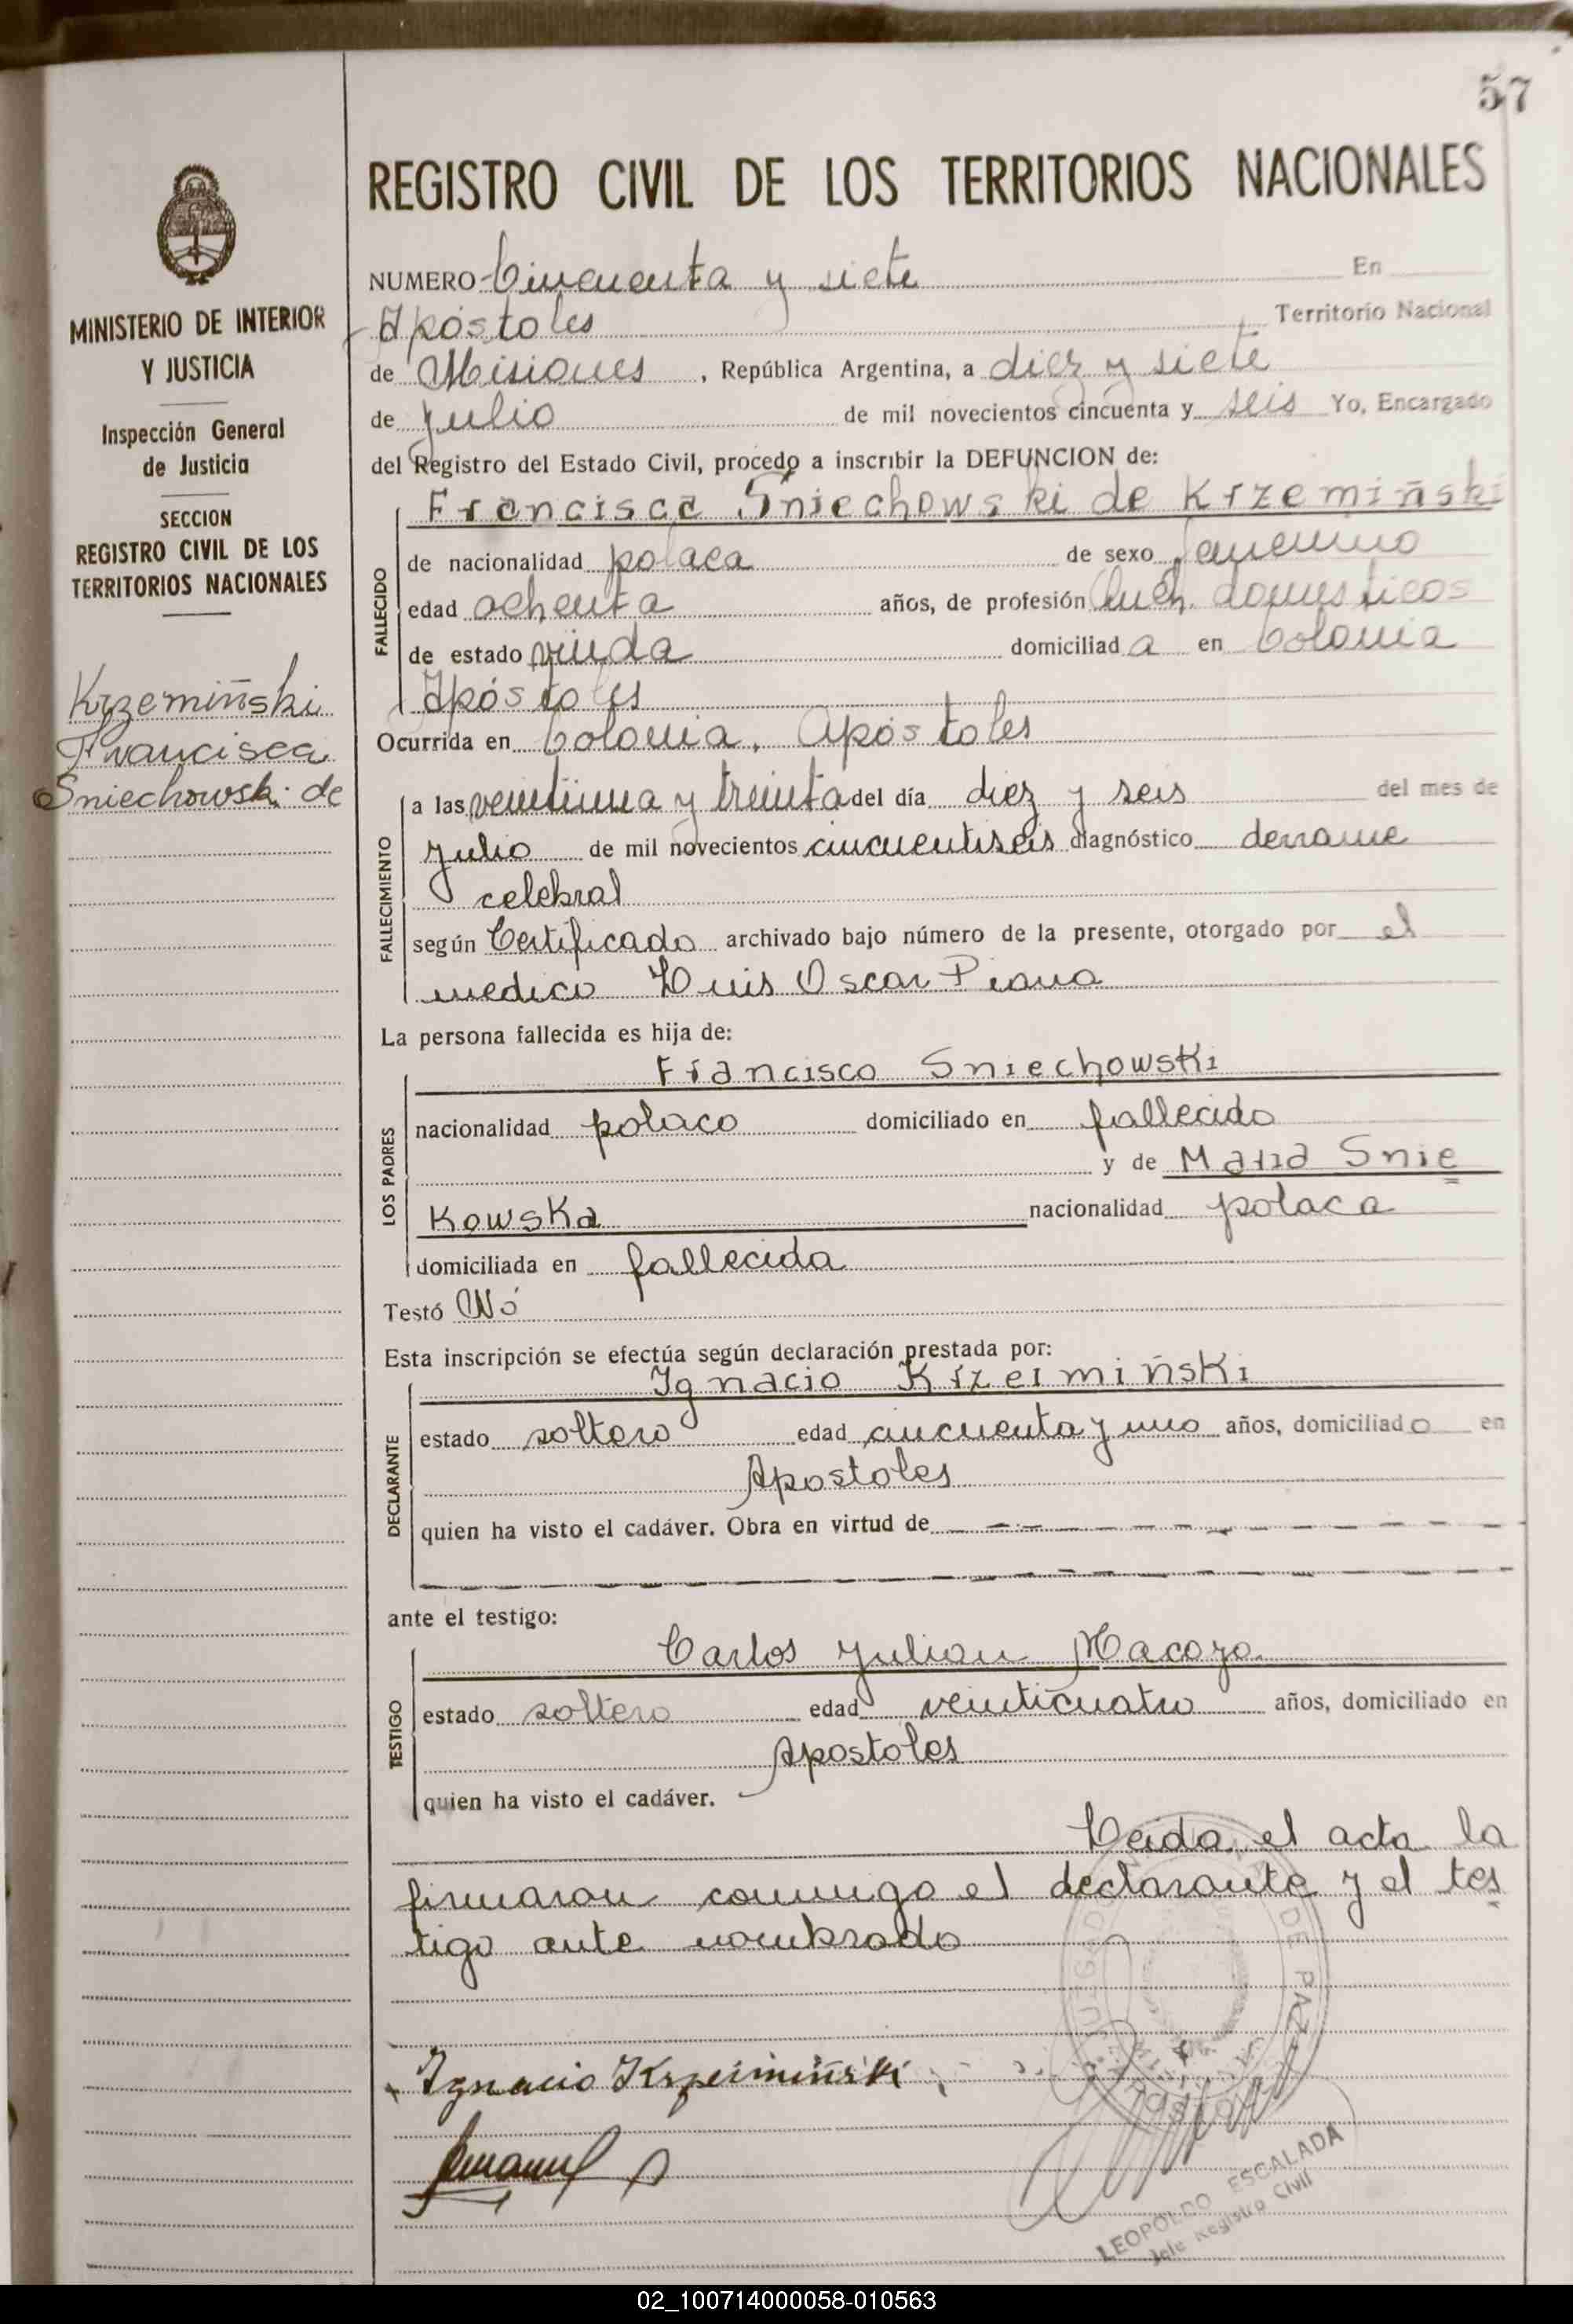 57
REGISTRO CIVIL DE LOS TERRITORIOS NACIONALES
MINISTERIO DE INTERIOR
Y JUSTICIA
Inspección General
de Justicia
SECCION
REGISTRO CIVIL DE LOS
TERRITORIOS NACIONALES
Krzemiñski
Francisca
Sniechowski de
NUMERO Cincuenta y siete En
Apóstoles Territorio Nacional
de Misiones, República Argentina, a diez y siete
de julio de mil novecientos cincuenta y seis Yo, Encargado
del Registro del Estado Civil, procedo a inscribir la DEFUNCION de:
Francisca Sniechowski de Krzemiñski
FALLECIDO
de nacionalidad polaca de sexo femenino
edad ochenta años, de profesión Queh. domésticos
de estado viuda domiciliad a en Colonia
Apóstoles
Ocurrida en Colonia, Apóstoles
FALLECIMIENTO
a las veintiuna y treinta del día diez y seis del mes de
julio de mil novecientos cincuentiseis diagnóstico derrame
celebral
según Certificado archivado bajo número de la presente, otorgado por el
medico Luis Oscar Piana
La persona fallecida es hija de:
LOS PADRES
Francisco Sniechowski
nacionalidad polaco domiciliado en fallecido
y de Maria Snie
Kowska nacionalidad polaca
domiciliada en fallecida
Testó Nó
Esta inscripción se efectúa según declaración prestada por:
DECLARANTE
Ignacio Krzeimiñski
estado soltero edad cincuenta y uno años, domiciliado en
Apostoles
quien ha visto el cadáver. Obra en virtud de
ante el testigo:
TESTIGO
Carlos Julian
estado soltero edad veinticuatro años, domiciliado en
Apostoles
quien ha visto el cadáver.
Leida el acta la
firmaron conmigo el declarante y el tes
tigo ante nombrado
Ignacio Krzeimiñski
DE PAZ
LEOPOLDO ESCALADA
Jefe Registro Civil
02_100714000058-010563